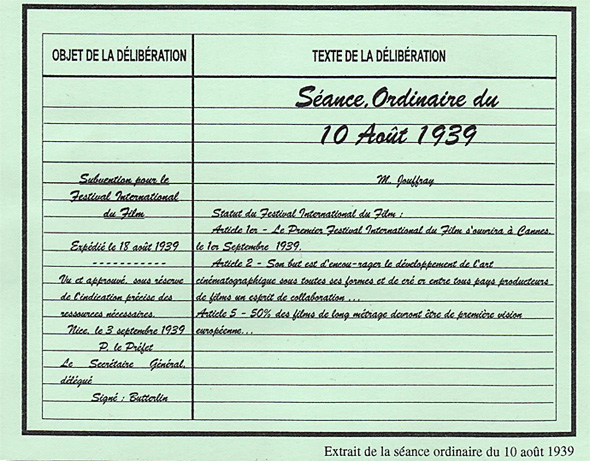 OBJET DE LA DÉLIBÉRATION
TEXTE DE LA DÉLIBÉRATION
Séance, Ordinaire du
10 Août 1939
Subvention pour le
Festival International
du Film
Expédié le 18 août 1939
-----------
Vu et approuvé, sous réserve
de l'indication précise des
ressources nécessaires.
Nice, le 3 septembre 1939
P. le Préfet
Le Secrétaire Général,
délégué
Signé : Butterlin
M. Jouffray
Statut du Festival International du Film :
Article 1er - Le Premier Festival International du Film s'ouvrira à Cannes,
le 1er Septembre 1939.
Article 2 - Son but est d'encou-rager le développement de l'art
cinématographique sous toutes ses formes et de cré er entre tous pays producteurs
de films un esprit de collaboration ...
Article 5 - 50% des films de long métrage devront être de première vision
européenne...
Extrait de la séance ordinaire du 10 août 1939